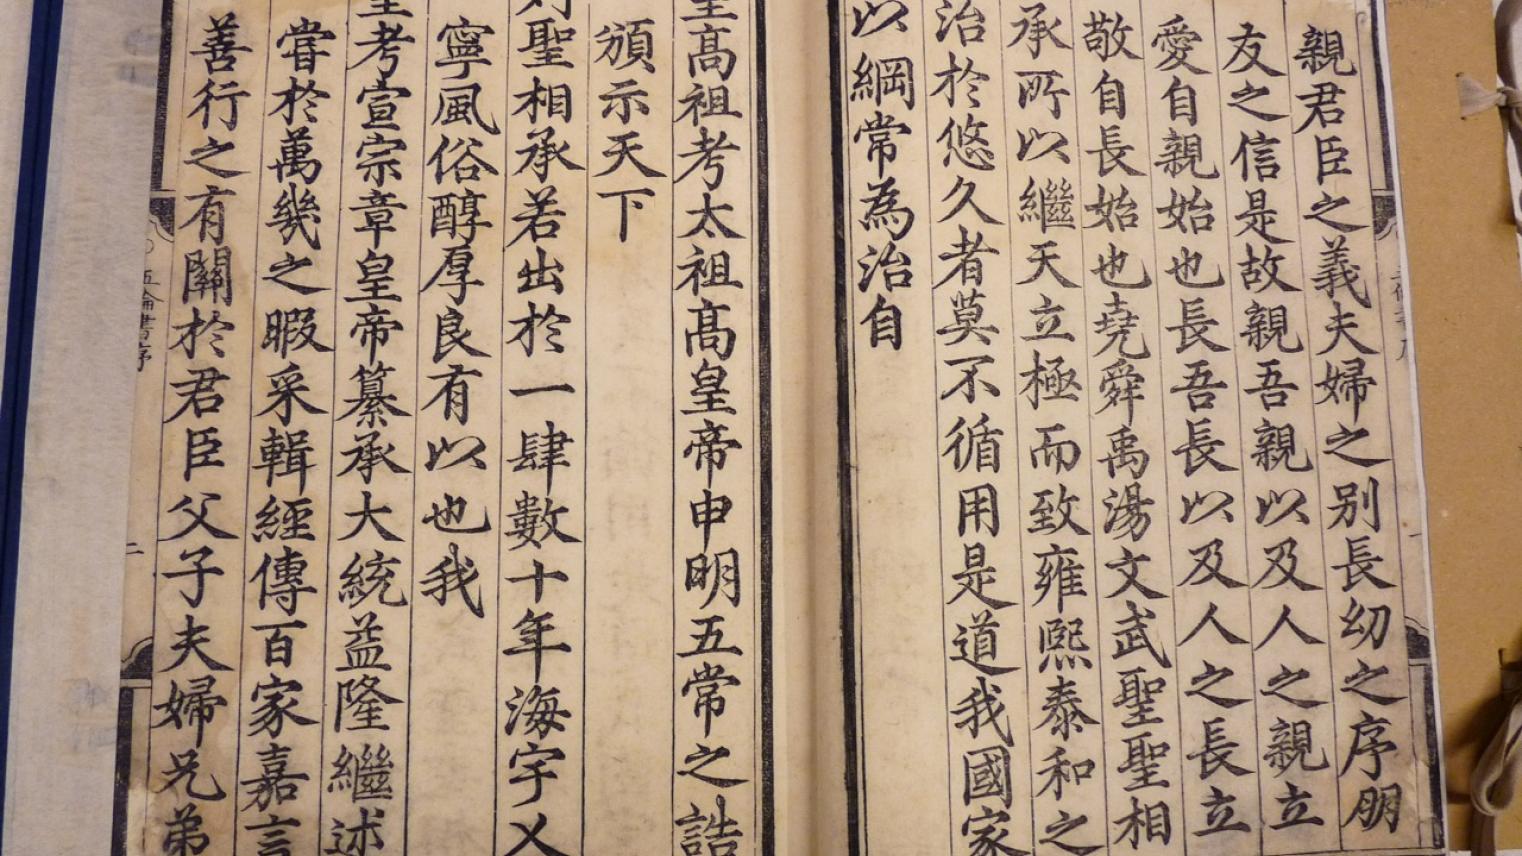 親君臣之義夫婦之别長幼之序朋
友之信是故親吾親以及人之親立
愛自親始也長吾長以及人之長立
敬自長始也堯舜禹湯文武聖聖相
承所以繼天立極而致雍熙泰和之
治於悠久者莫不循用是道我國家
以綱常為治自
皇高祖考太祖高皇帝申明五常之誥
頒示天下
列聖相承若出於一肆數十年海宇乂
寧風俗醇厚良有以也我
皇考宣宗章皇帝纂承大統益隆繼述
嘗於萬幾之暇采輯經傳百家嘉言
善行之有關於君臣父子夫婦兄弟
五倫書序
二